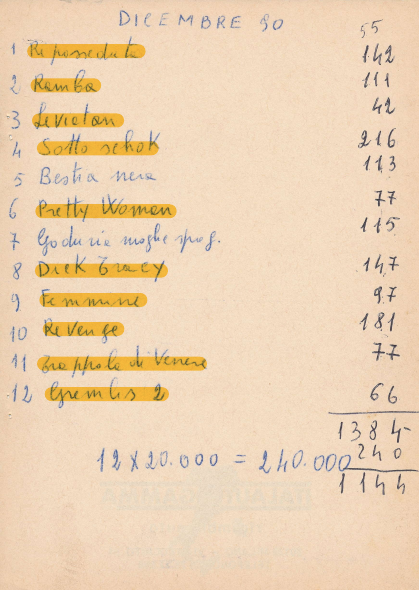 DICEMBRE 90
55
1 Riposseduta 142
2 Rambo 111
3 Leviatan 42
4 Sotto schok 216
5 Bestia nera 113
6 Pretty Woman 77
7 Goduria moglie spog. 115
8 Dick Tracy 147
9 Femmine 97
10 Revenge 181
11 Trappola di Venere 77
12 Gremlis 2 66
1384
12 X 20.000 = 240.000 240
1144